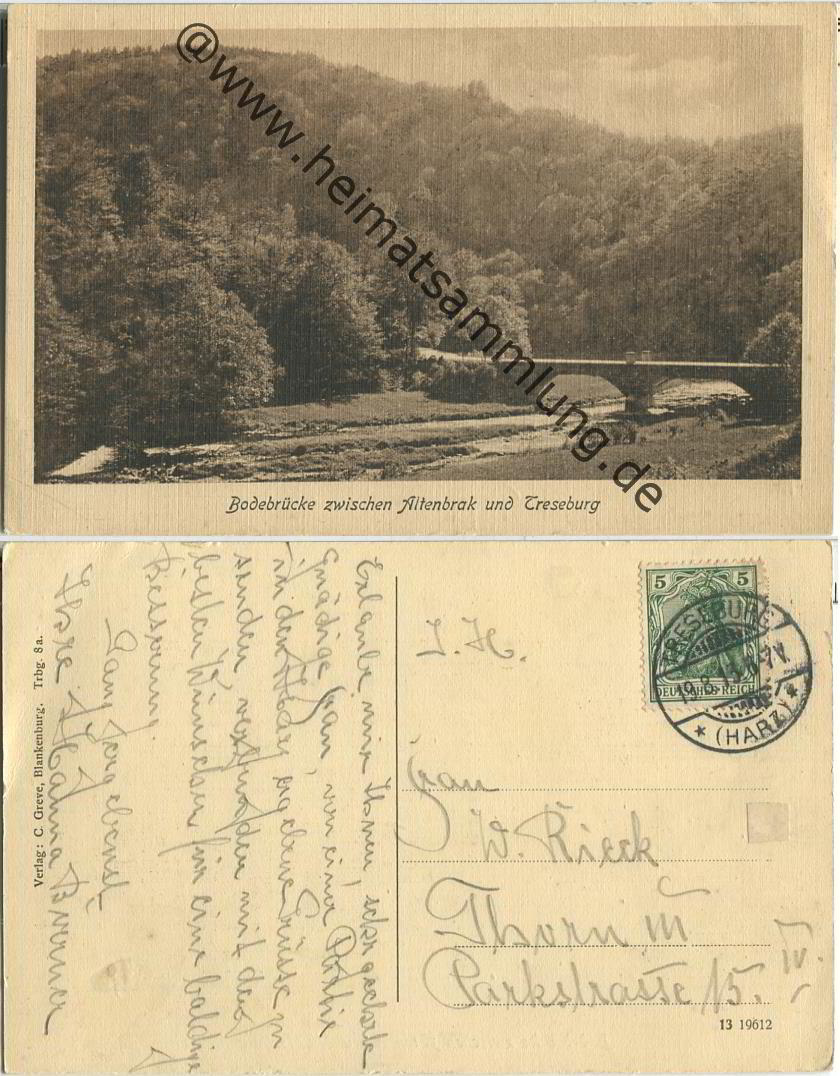 @www.heimatsammlung.de
Bodebrücke zwischen Altenbrak und Treseburg
Erlaube mir Ihnen, sehr geehrte
gnädige Frau, von einer Partie
in den Harz ergebene Grüsse zu
senden, verbunden mit den
besten Wünschen für eine baldige
Besserung.
Ganz ergebenst
Ihre Hanna Brerner
Verlag: C. Greve, Blankenburg. Trbg. 8a.
5 5
DEUTSCHES REICH
TRESEBURG
19.8.13. 6-7V.
* (HARZ) *
I. H.
Frau
W. Rieck
Thorn III
Parkstrasse 15. IV.
13 19612